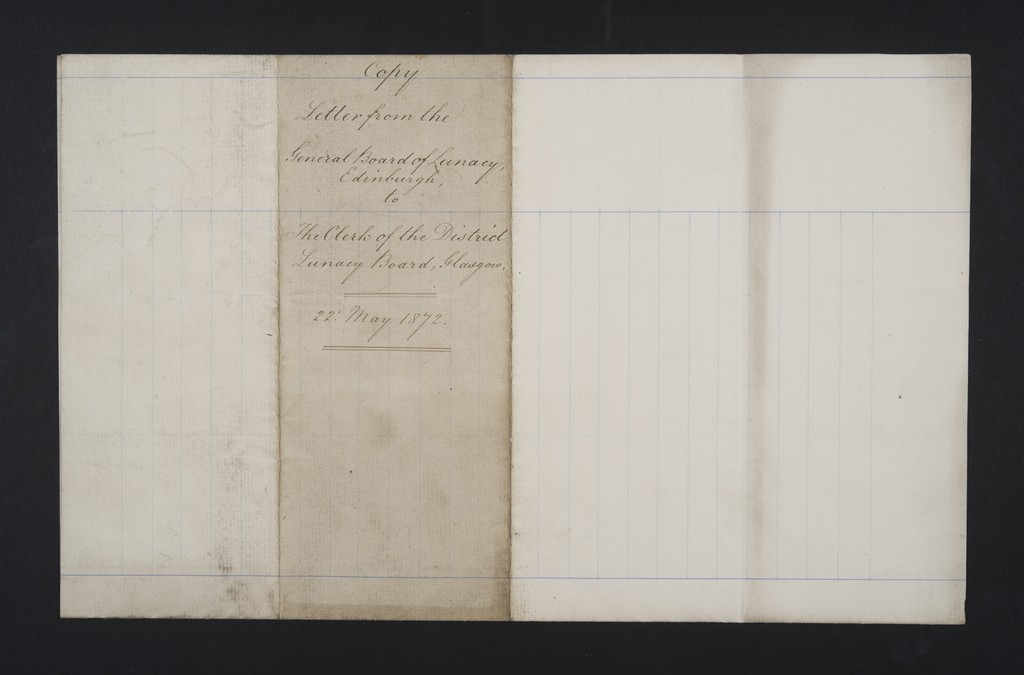 Copy
Letter from the
General Board of Lunacy,
Edinburgh,
to
The Clerk of the District
Lunacy Board, Glasgow,
22d. May 1872.